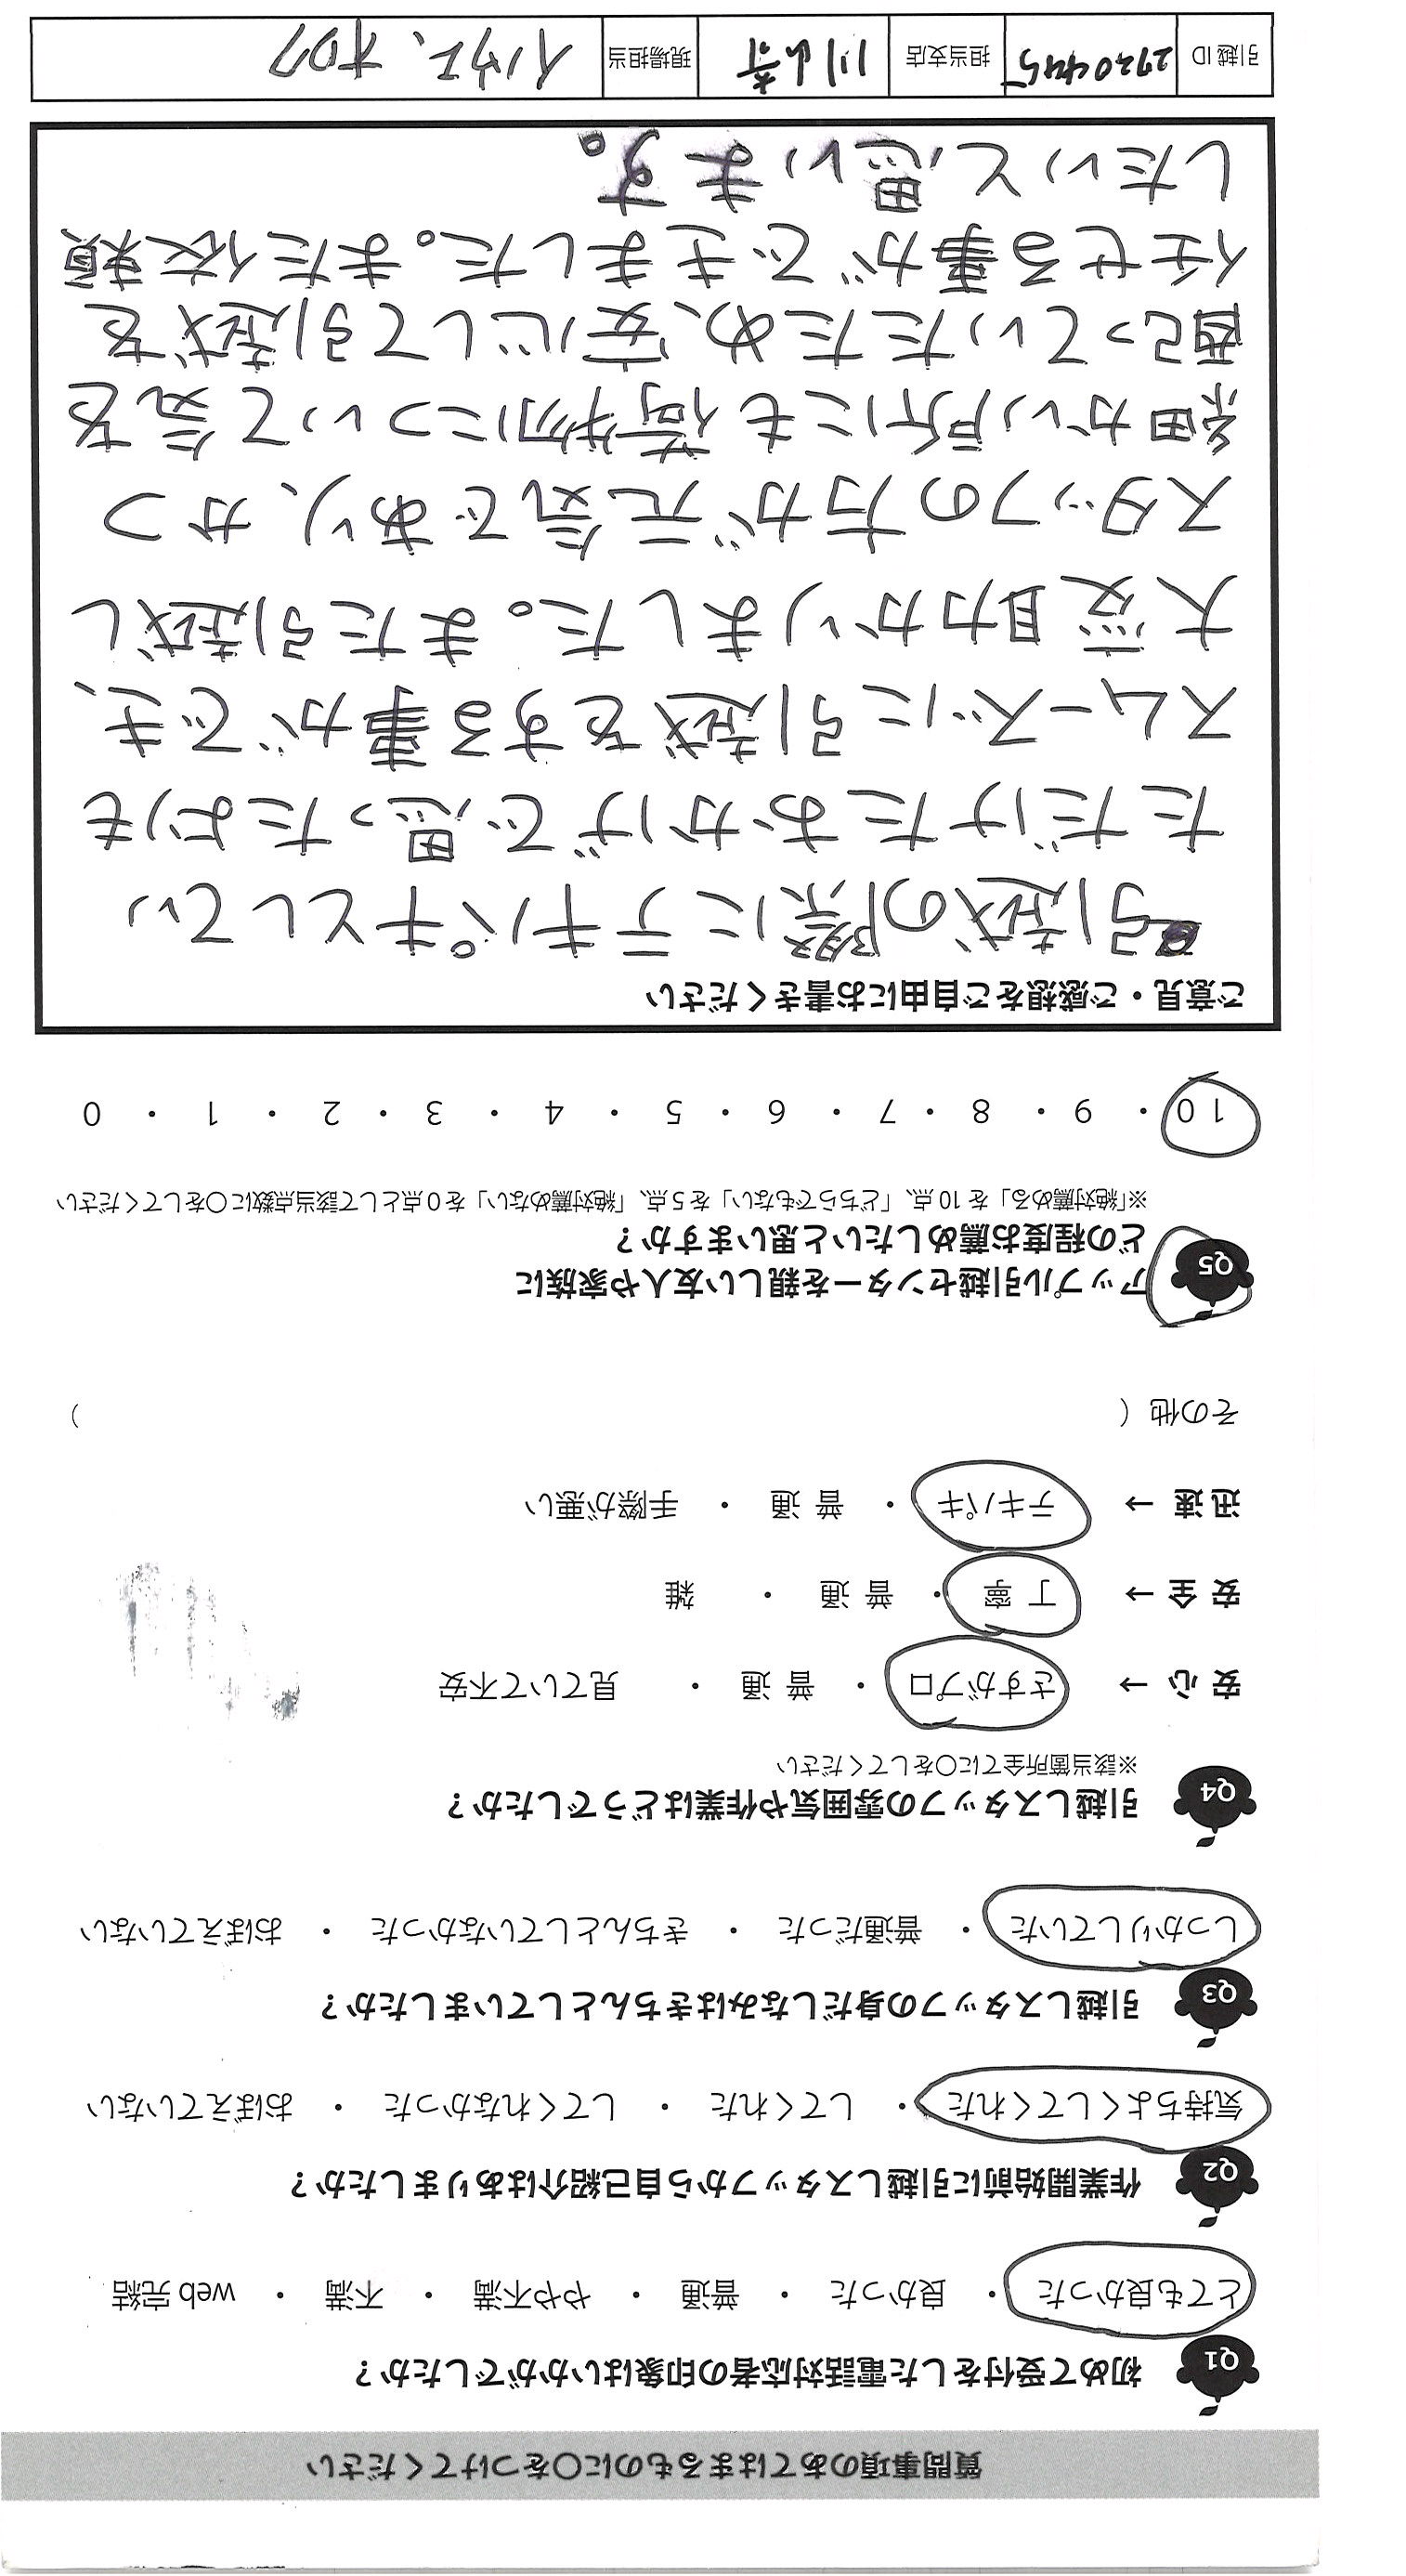 質問事項のあてはまるものに〇をつけてください
Q1 初めて受付をした電話対応者の印象はいかがでしたか？
とても良かった ・ 良かった ・ 普通 ・ やや不満 ・ 不満 ・ web 完結
Q2 作業開始前に引越しスタッフから自己紹介はありましたか？
気持ちよくしてくれた ・ してくれた ・ してくれなかった ・ おぼえていない
Q3 引越しスタッフの身だしなみはきちんとしていましたか？
しっかりしていた ・ 普通だった ・ きちんとしていなかった ・ おぼえていない
Q4 引越しスタッフの雰囲気や作業はどうでしたか？
※該当箇所全てに〇をしてください
安 心 → さすがプロ ・ 普 通 ・ 見ていて不安
安 全 → 丁 寧 ・ 普 通 ・ 雑
迅 速 → テキパキ ・ 普 通 ・ 手際が悪い
その他（ ）
Q5 アップル引越センターを親しい友人や家族に
どの程度お薦めしたいと思いますか？
※「絶対薦める」を 10 点、「どちらでもない」を 5 点、「絶対薦めない」を 0 点として該当点数に〇をしてください
10 ・ 9 ・ 8 ・ 7 ・ 6 ・ 5 ・ 4 ・ 3 ・ 2 ・ 1 ・ 0
ご意見・ご感想をご自由にお書きください
引越の際にテキパキとしてい
ただけたおかげで思ったよりも
スムーズに引越をする事ができ、
大変助かりました。また引越し
スタッフの方が元気であり、かつ
細かい所にも荷物について気を
配っていただため、安心して引越を
任せる事ができました。また依頼
したいと思います。
引越 ID 2920445 担当支店 川崎 現場担当 イノウエ、オログ